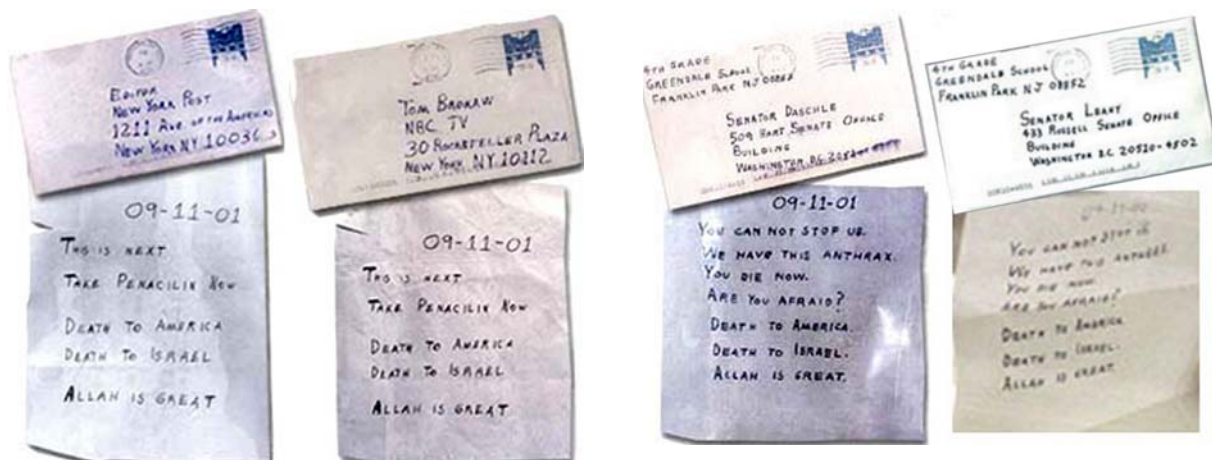 EDITOR
NEW YORK POST
1211 AVE. OF THE AMERICAS
NEW YORK NY 10036
09-11-01
THIS IS NEXT
TAKE PENACILIN NOW
DEATH TO AMERICA
DEATH TO ISRAEL
ALLAH IS GREAT
TOM BROKAW
NBC TV
30 ROCKEFELLER PLAZA
NEW YORK NY 10112
09-11-01
THIS IS NEXT
TAKE PENACILIN NOW
DEATH TO AMERICA
DEATH TO ISRAEL
ALLAH IS GREAT
4TH GRADE
GREENDALE SCHOOL
FRANKLIN PARK NJ 08852
SENATOR DASCHLE
509 HART SENATE OFFICE
BUILDING
WASHINGTON D.C.
09-11-01
YOU CAN NOT STOP US.
WE HAVE THIS ANTHRAX.
YOU DIE NOW.
ARE YOU AFRAID?
DEATH TO AMERICA.
DEATH TO ISRAEL.
ALLAH IS GREAT.
4TH GRADE
GREENDALE SCHOOL
FRANKLIN PARK NJ 08852
SENATOR LEAHY
433 RUSSELL SENATE OFFICE
BUILDING
WASHINGTON D.C. 20510-4502
09-11-01
YOU CAN NOT STOP US.
WE HAVE THIS ANTHRAX.
YOU DIE NOW.
ARE YOU AFRAID?
DEATH TO AMERICA.
DEATH TO ISRAEL.
ALLAH IS GREAT.